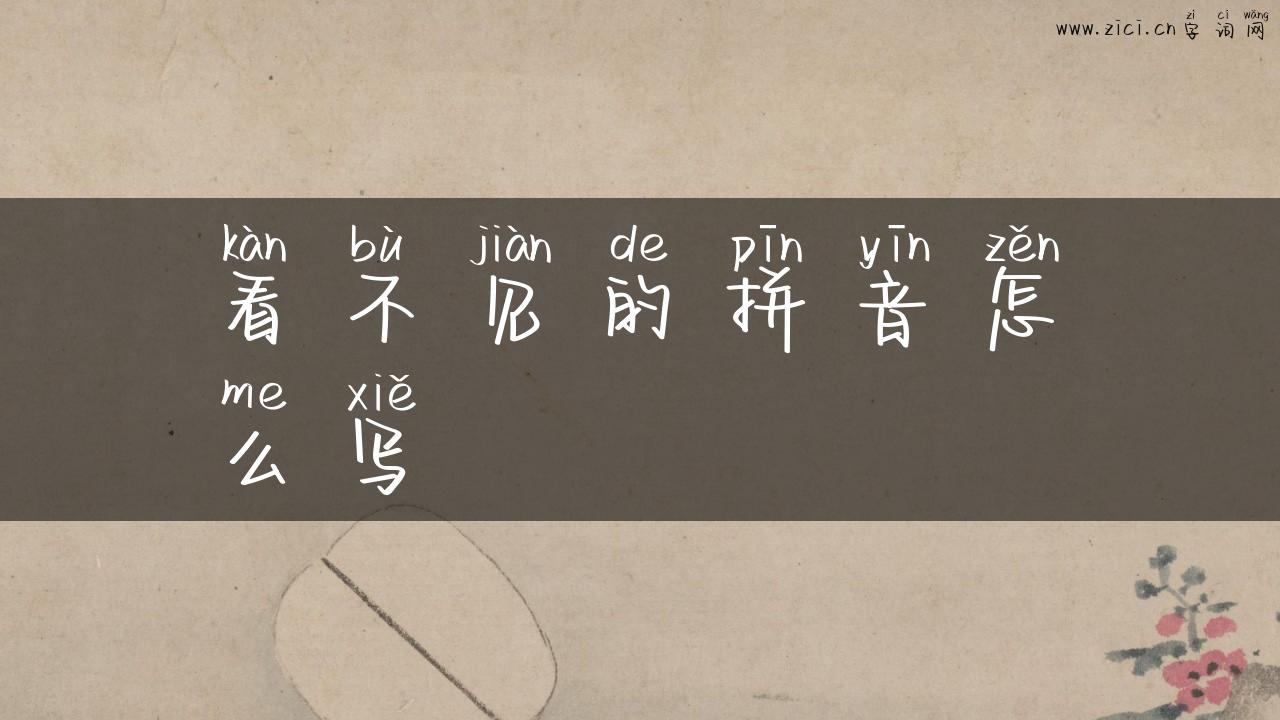 zì cí wǎng
www.zici.cn字词网
kàn bù jiàn de pīn yīn zěn
看不见的拼音怎
me xiě
么写